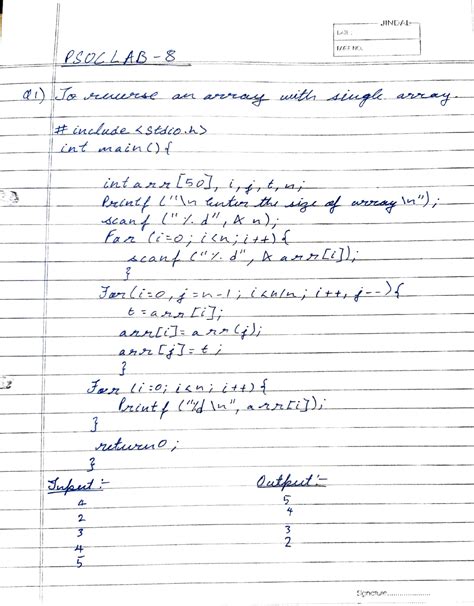 JINDAL
DATE:
PAGE NO.
PSOC LAB - 8
Q1) To reverse an array with single array.
# include <stdio.h>
int main () {
int arr [50], i, j, t, n;
Printf ("\n Enter the size of array \n");
scanf ("%d", & n);
For (i=0; i<n; i++) {
scanf ("%d", & arr[i]);
}
For (i=0, j=n-1; i<n/n; i++, j--) {
t = arr [i];
arr[i] = arr(j);
arr [j] = t ;
}
For (i=0; i<n; i++) {
Printf ("%d \n", arr[i]);
}
return 0 ;
}
Input :- Output :-
4 5
2 4
3 3
4 2
5
Signature